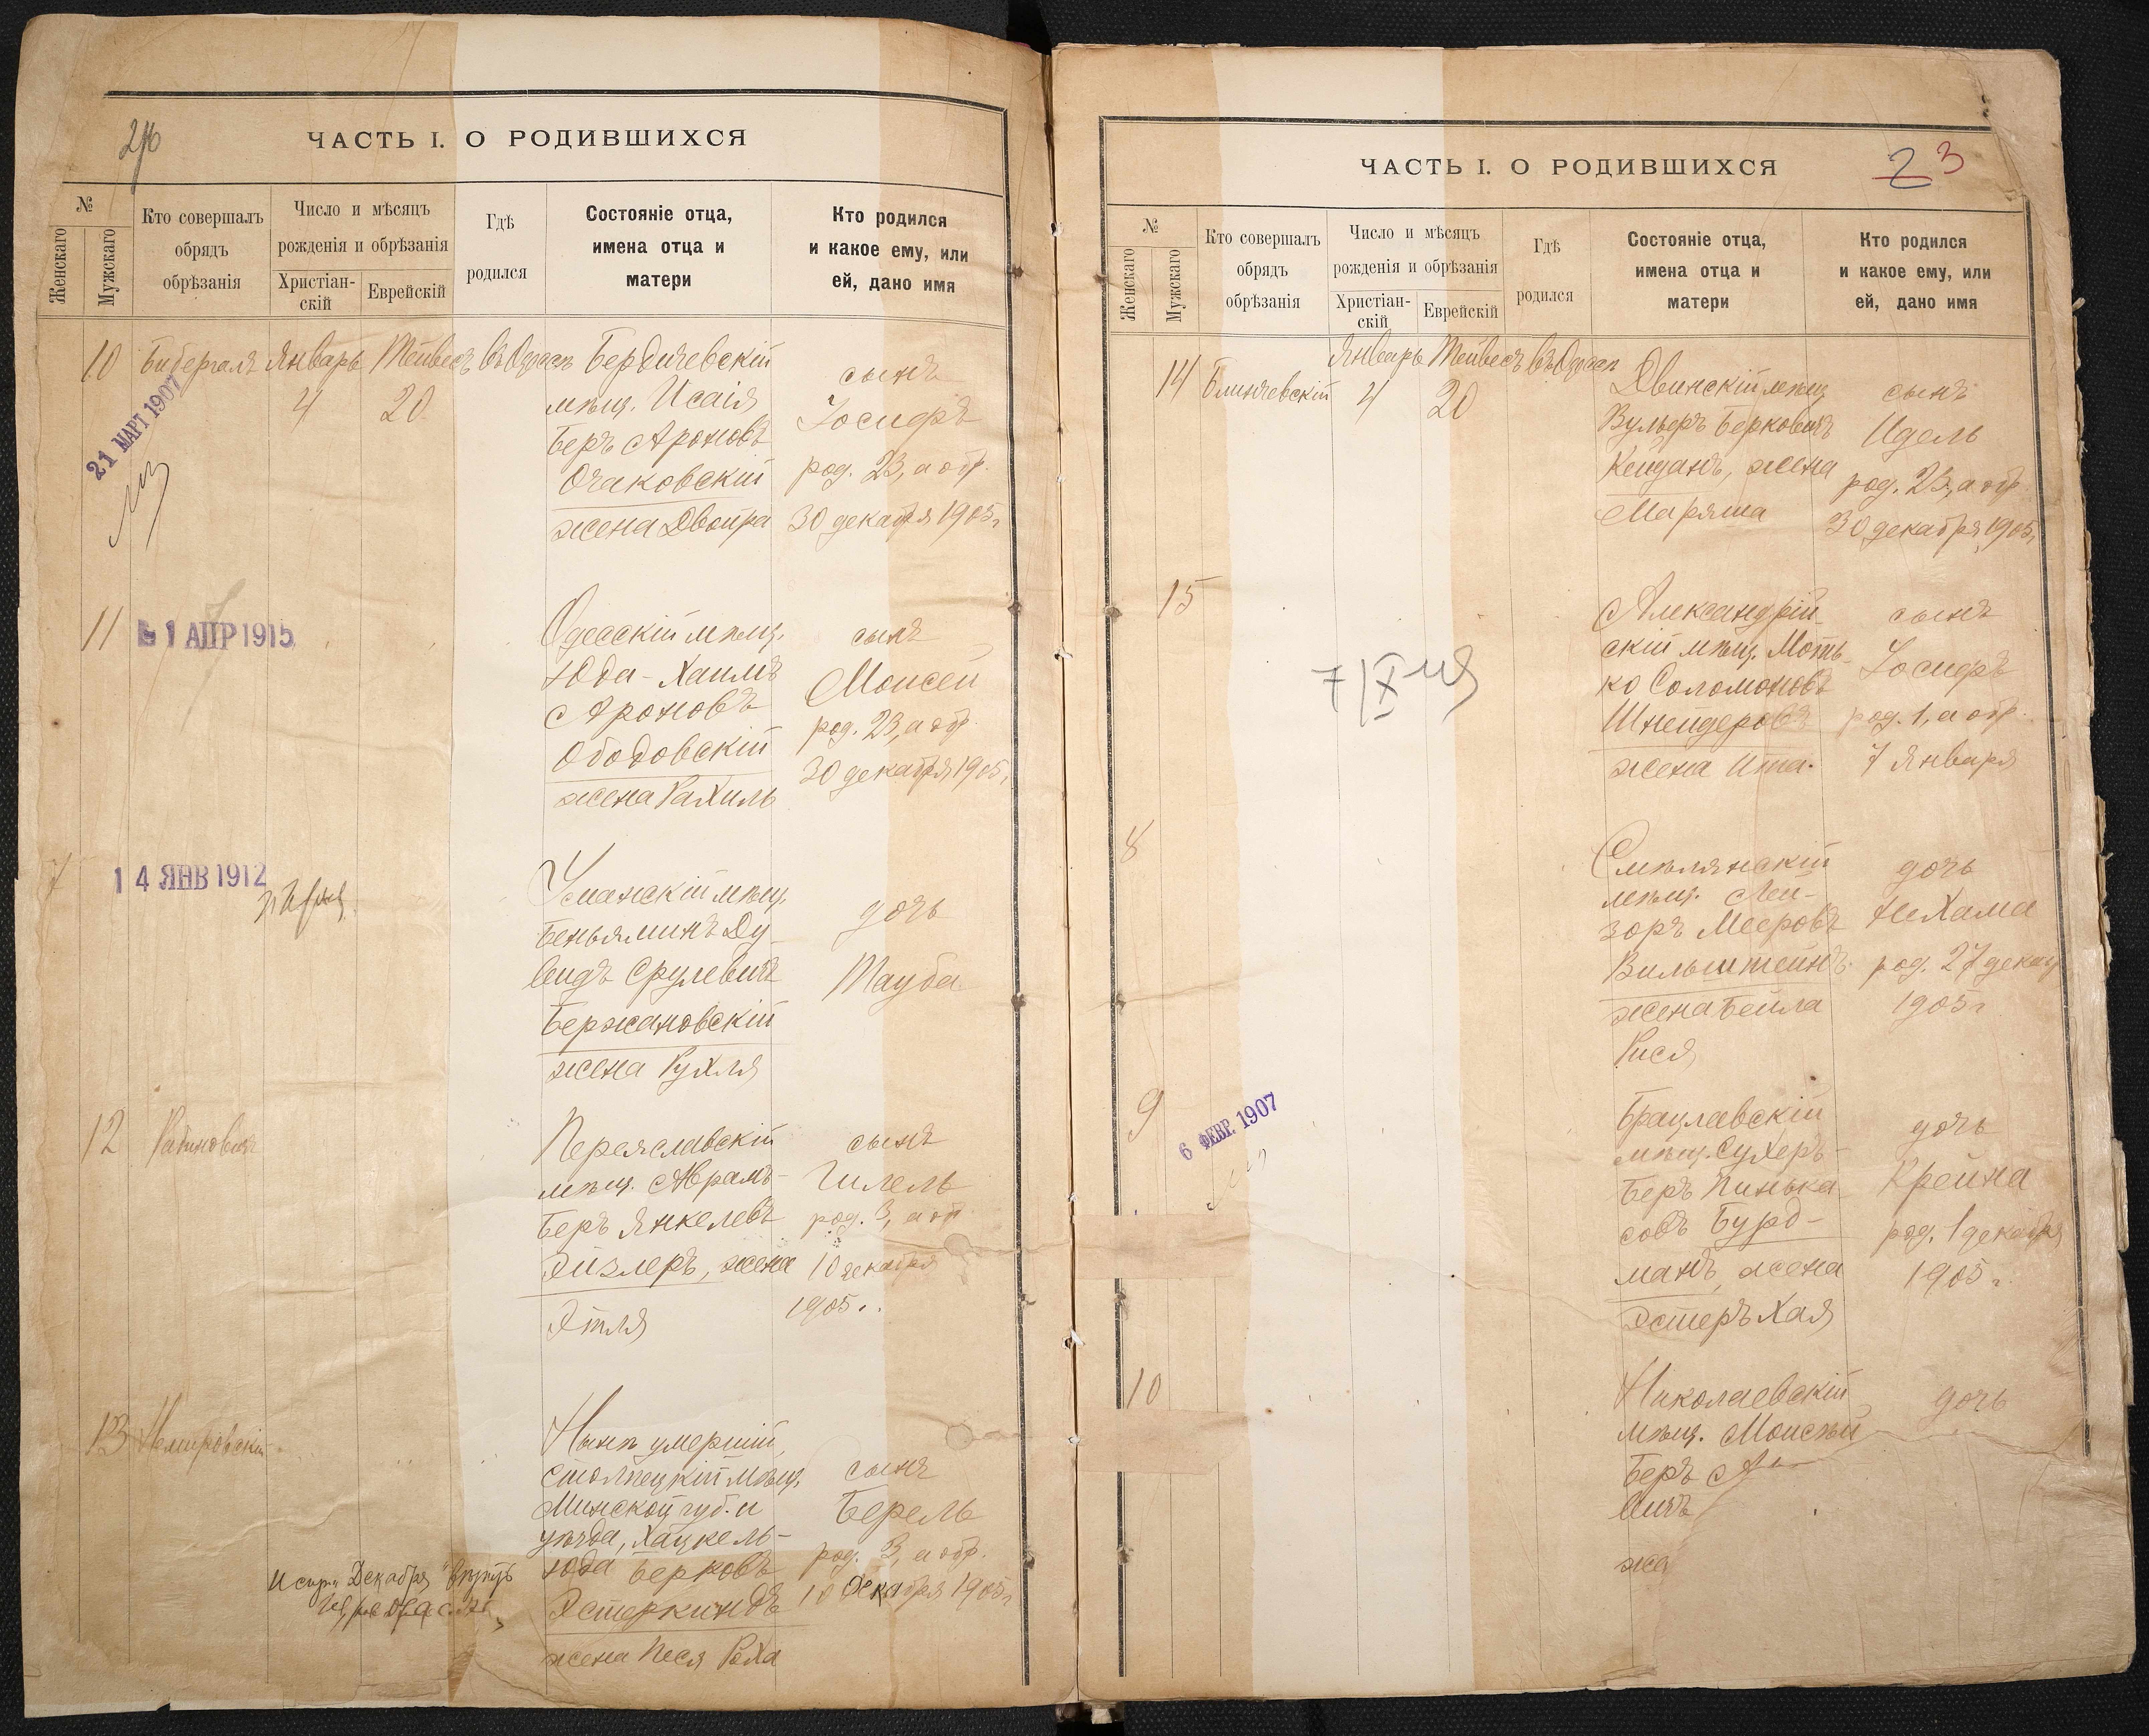 ЧАСТЬ I. О РОДИВШИХСЯ
№
Женскаго
Мужскаго
Кто совершалъ
обрядъ
обрѣзанія
Число и мѣсяцъ
рожденія и обрѣзанія
Христіан-
скій
Еврейскій
Гдѣ
родился
Состояніе отца,
имена отца и
матери
Кто родился
и какое ему, или
ей, дано имя
10
Бибергалъ
Январь
4
Тейвесъ
20
въ Одессѣ
Бердичевскій
мѣщ. Исаія
Беръ Ароновъ
Очаковскій
жена Двойра
сынъ
Іосифъ
род. 23, а обр.
30 декабря 1905 г
21 МАРТ 1907
11
1 АПР 1915
Одесскій мѣщ.
Юда-Хаимъ
Ароновъ
Ободовскій
жена Рахиль
сынъ
Моисей
род. 23, а обр.
30 декабря 1905 г
7
14 ЯНВ 1912
Уманскій мѣщ.
Беньяминъ Ду-
видъ Срулевичъ
Бержановскій
жена Рухля
дочь
Тауба
12
Рабиновичъ
Переяславскій
мѣщ. Абрамъ-
Беръ Янкелевъ
Эйзлеръ, жена
Этля
сынъ
Гилель
род. 3, а обр
10 декабря
1905 г.
13
Немировскій
Нынѣ умершій,
Столпецкій мѣщ.
Минской губ. и
уѣзда, Хацкель-
Юда Берковъ
Эстеркиндъ
жена Песя Роха
сынъ
Берель
род. 3, а обр.
10 декабря 1905 г
Декабря
ЧАСТЬ I. О РОДИВШИХСЯ
23
№
Женскаго
Мужскаго
Кто совершалъ
обрядъ
обрѣзанія
Число и мѣсяцъ
рожденія и обрѣзанія
Христіан-
скій
Еврейскій
Гдѣ
родился
Состояніе отца,
имена отца и
матери
Кто родился
и какое ему, или
ей, дано имя
14
Блинчевскій
Январь
4
Тейвесъ
20
въ Одессѣ
Двинскій мѣщ
Вульфъ Берковичъ
Кейданъ, жена
Маряша
сынъ
Идель
род. 23, а обр
30 декабря 1905 г
15
Александрій-
скій мѣщ. Моть-
ко Соломоновъ
Шнейдеровъ
жена Ита.
сынъ
Іосифъ
род. 1, а обр.
7 Января
8
Смѣлянскій
мѣщ. Лей-
зоръ Мееровъ
Вильштейнъ
жена Бейла
Рися
дочь
Нехама
род. 27 декаб
1905 г
9
6 ФЕВР. 1907
Брацлавскій
мѣщ. Сухеръ-
Беръ Пинька-
совъ Бурд-
манъ, жена
Эстеръ Хая
дочь
Крейна
род. 1 декабря
1905 г.
10
Николаевскій
мѣщ. Моисей
Беръ
вичъ
же
дочь